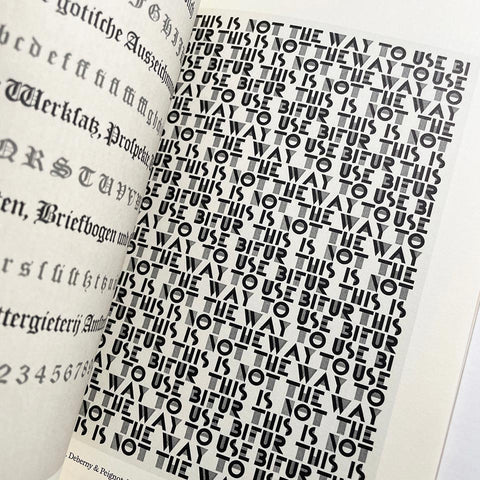 F G H I J
e gotische Auszeichnun
b c d e f ff fi fl ffl g h
Werksatz, Prospekte
Q R S T U V W
ten, Briefbogen und
ttergieterij Amster
1 2 3 4 5 6 7 8
THIS IS NOT THE WAY TO USE BI
FUR THIS IS NOT THE WAY TO
USE BIFUR THIS IS NOT THE
WAY TO USE BIFUR THIS IS
NOT THE WAY TO USE BIFUR
THIS IS NOT THE WAY TO USE BI
FUR THIS IS NOT THE WAY TO
USE BIFUR THIS IS NOT THE
WAY TO USE BIFUR THIS IS
NOT THE WAY TO USE BIFUR
THIS IS NOT THE WAY TO USE BI
FUR THIS IS NOT THE WAY TO
USE BIFUR THIS IS NOT THE
WAY TO USE BIFUR THIS IS
NOT THE WAY TO USE BIFUR
THIS IS NOT THE WAY
Deberny & Peignot